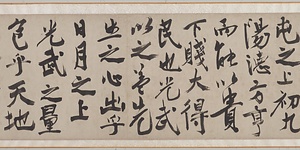 屯之上初九
陽德方亨
而能以貴
下賤大得
民也光武
以之蓋先
生之心出乎
日月之上
光武之量
包乎天地